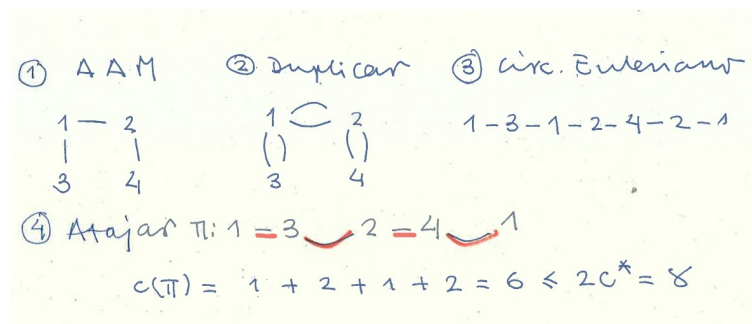 ① AAM ② Duplicar ③ Circ. Euleriano
1 — 2 1 2 1-3-1-2-4-2-1
3 4 3 4
④ Atajar π: 1 - 3 2 - 4 1
c(π) = 1 + 2 + 1 + 2 = 6 ≤ 2c* = 8